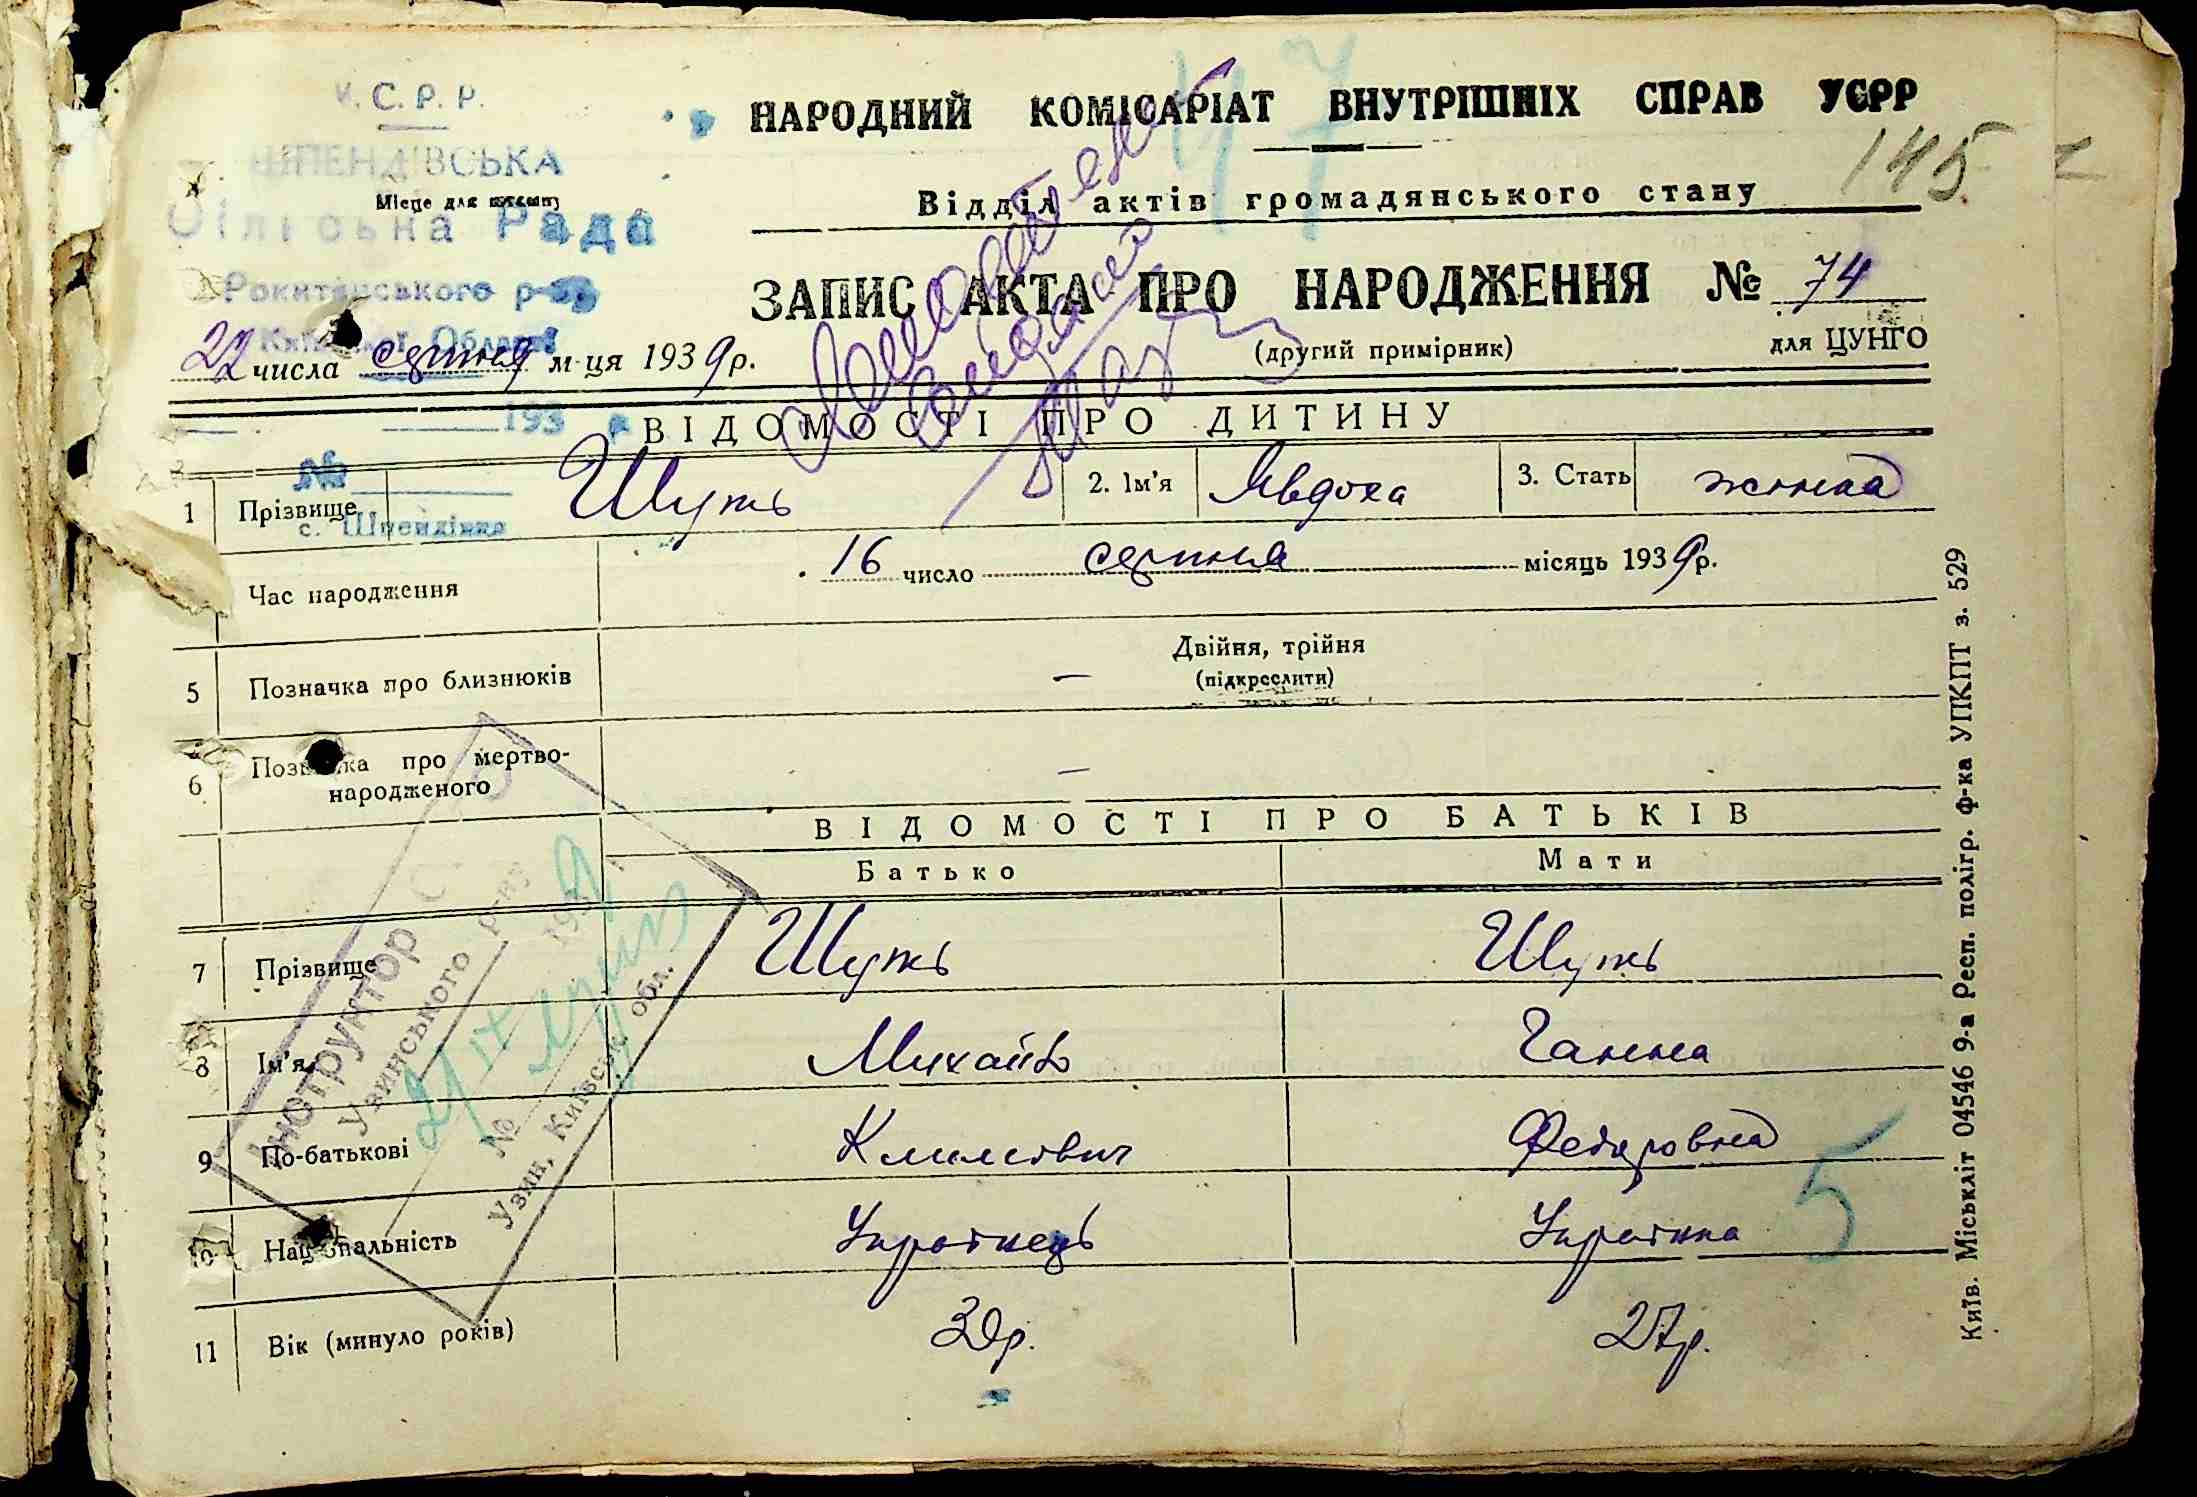 У.С.Р.Р.
ШПЕНДІВСЬКА
Місце для штампу
Сільська Рада
Рокитянського р-ну
Київської Області
193 р
№
с. Шпендівка
НАРОДНИЙ КОМІСАРІАТ ВНУТРІШНІХ СПРАВ УСРР
47
145
Відділ актів громадянського стану
ЗАПИС АКТА ПРО НАРОДЖЕННЯ № 74
(другий примірник) для ЦУНГО
22 числа серпня м-ця 1939 р.
ВІДОМОСТІ ПРО ДИТИНУ
1 Прізвище Шуть 2. Ім'я Явдоха 3. Стать жіноча
Час народження 16 число серпня місяць 1939 р.
5 Позначка про близнюків — Двійня, трійня
(підкреслити)
6 Позначка про мертво-
народженого —
ВІДОМОСТІ ПРО БАТЬКІВ
Батько Мати
7 Прізвище Шуть Шуть
8 Ім'я Михайло Ганна
9 По-батькові Климович Федоровна
10 Національність Українець Українка
5
11 Вік (минуло років) 30р. 27р.
Інструктор
Узинського р-ну
193
№
Узин, Київськ. обл.
Київ. Міськліт 04546 9-а Респ. полігр. ф-ка УПКПТ з. 529